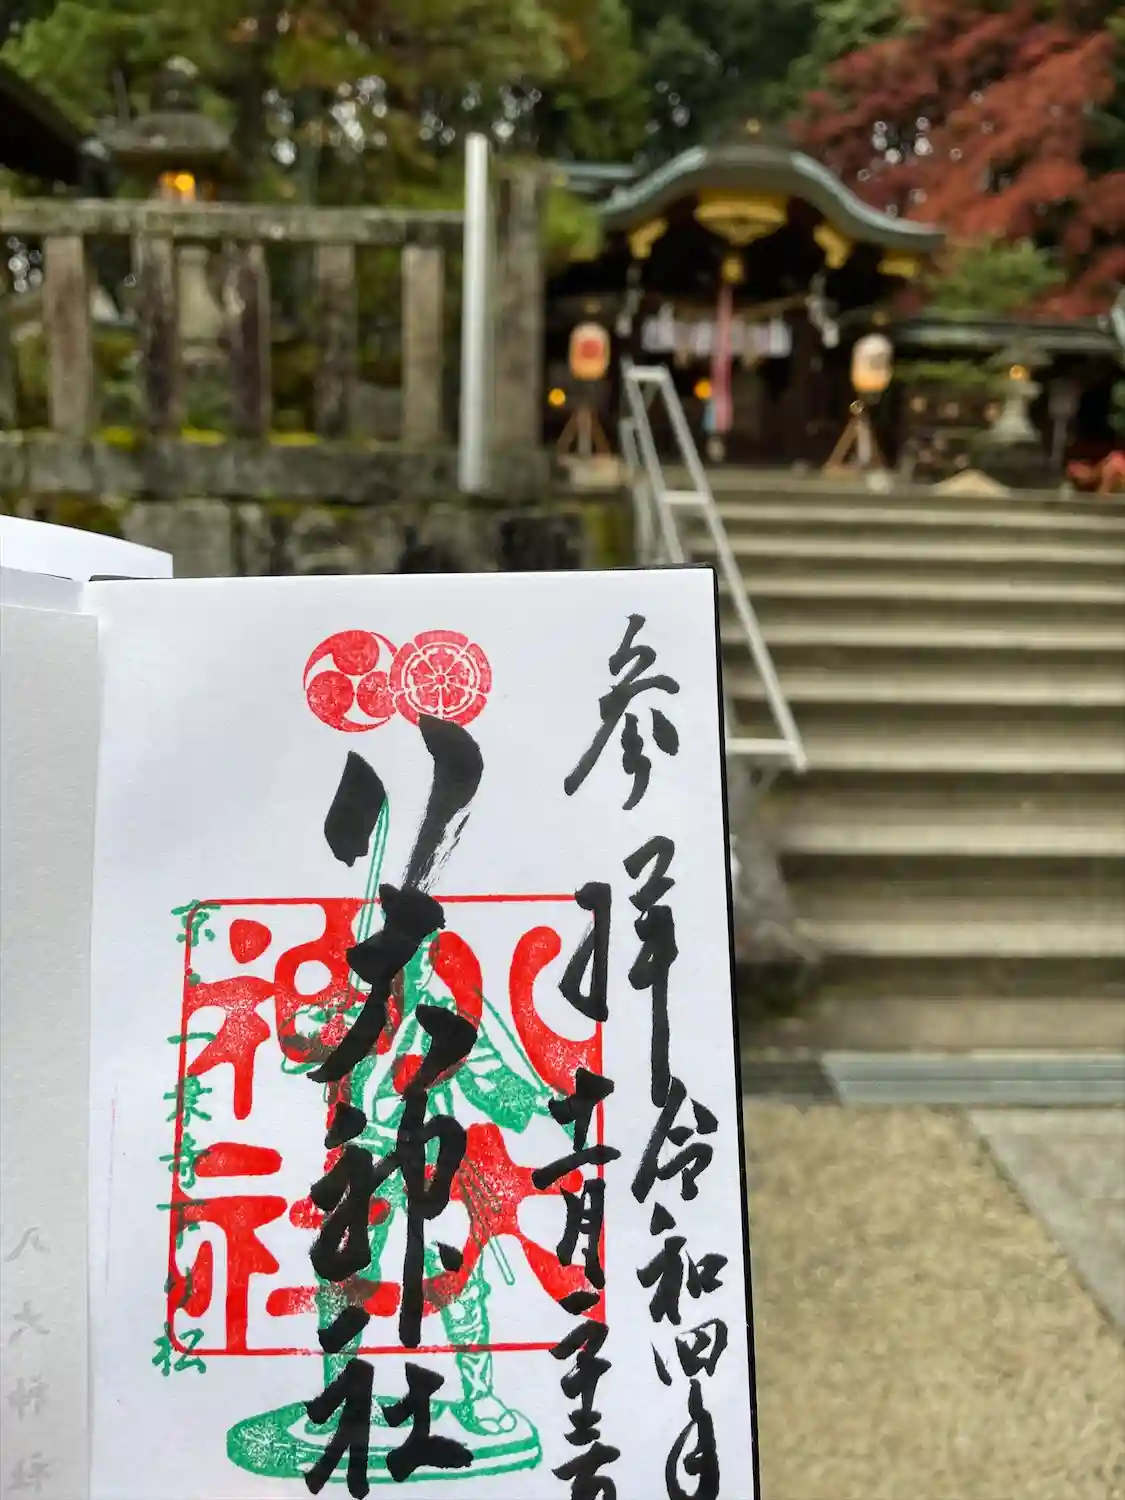 参拝 令和四年
十一月二十三日
八大神社
八大
神社
京都一乗寺下り松
八大神社